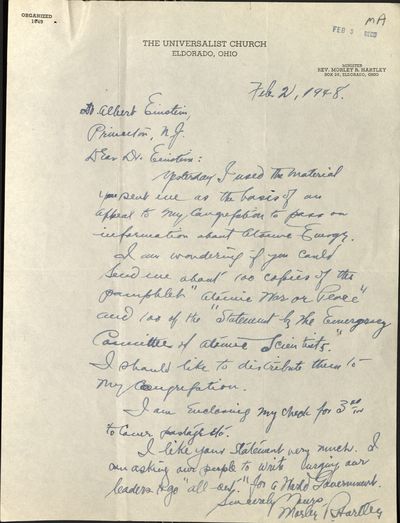 ORGANIZED
1849
MA
FEB 3 RECD
THE UNIVERSALIST CHURCH
ELDORADO, OHIO
MINISTER
REV. MORLEY R. HARTLEY
BOX 25, ELDORADO, OHIO
Feb. 2, 1948.
Dr Albert Einstein,
Princeton, N.J.
Dear Dr. Einstein:
Yesterday I used the material
you sent me as the basis of an
appeal to my Congregation to pass on
information about Atomic Energy.
I am wondering if you could
send me about 100 copies of the
pamphlet "Atomic War or Peace"
and 100 of the "Statement by the Emergency
Committee of Atomic Scientists".
I should like to distribute them to
my Congregation.
I am enclosing my check for 3.00
to cover postage etc.
I like your statement very much. I
am asking our people to write urging our
leaders to go "all out" for a World Government.
Sincerely Yours
Morley R Hartley